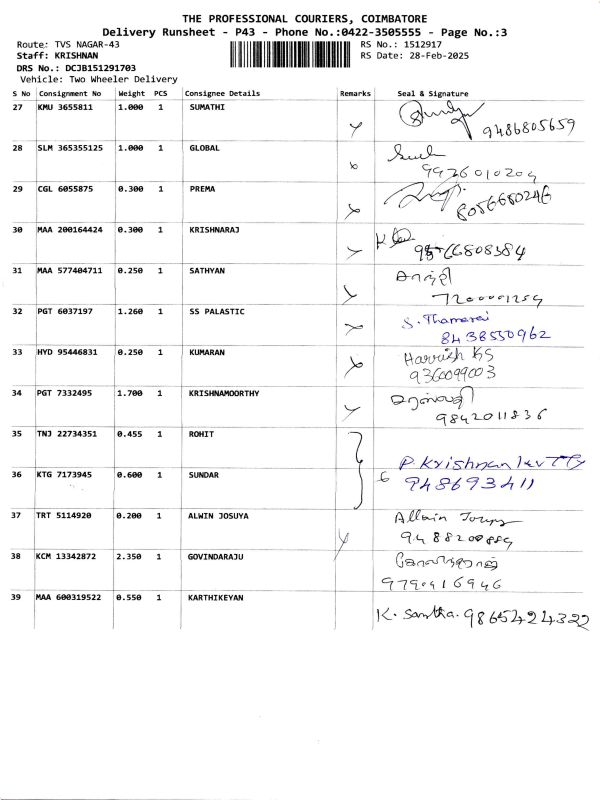 THE PROFESSIONAL COURIERS, COIMBATORE
Delivery Runsheet - P43 - Phone No.:0422-3505555 - Page No.:3
Route: TVS NAGAR-43 RS No.: 1512917
Staff: KRISHNAN RS Date: 28-Feb-2025
DRS No.: DCJB151291703
Vehicle: Two Wheeler Delivery
S No Consignment No Weight PCS Consignee Details Remarks Seal & Signature
27 KMU 3655811 1.000 1 SUMATHI
9486805659
28 SLM 365355125 1.000 1 GLOBAL
9926010204
29 CGL 6055875 0.300 1 PREMA
8056680246
30 MAA 200164424 0.300 1 KRISHNARAJ
31 MAA 577404711 0.250 1 SATHYAN
32 PGT 6037197 1.260 1 SS PALASTIC
S. Thamarai
8438550962
33 HYD 95446831 0.250 1 KUMARAN
Harrish KS
9360099003
34 PGT 7332495 1.700 1 KRISHNAMOORTHY
9842011836
35 TNJ 22734351 0.455 1 ROHIT
P. Krishnan kutty
36 KTG 7173945 0.600 1 SUNDAR
948693411
37 TRT 5114920 0.200 1 ALWIN JOSUYA
38 KCM 13342872 2.350 1 GOVINDARAJU
9790416946
39 MAA 600319522 0.550 1 KARTHIKEYAN
K. Santha. 9865424322